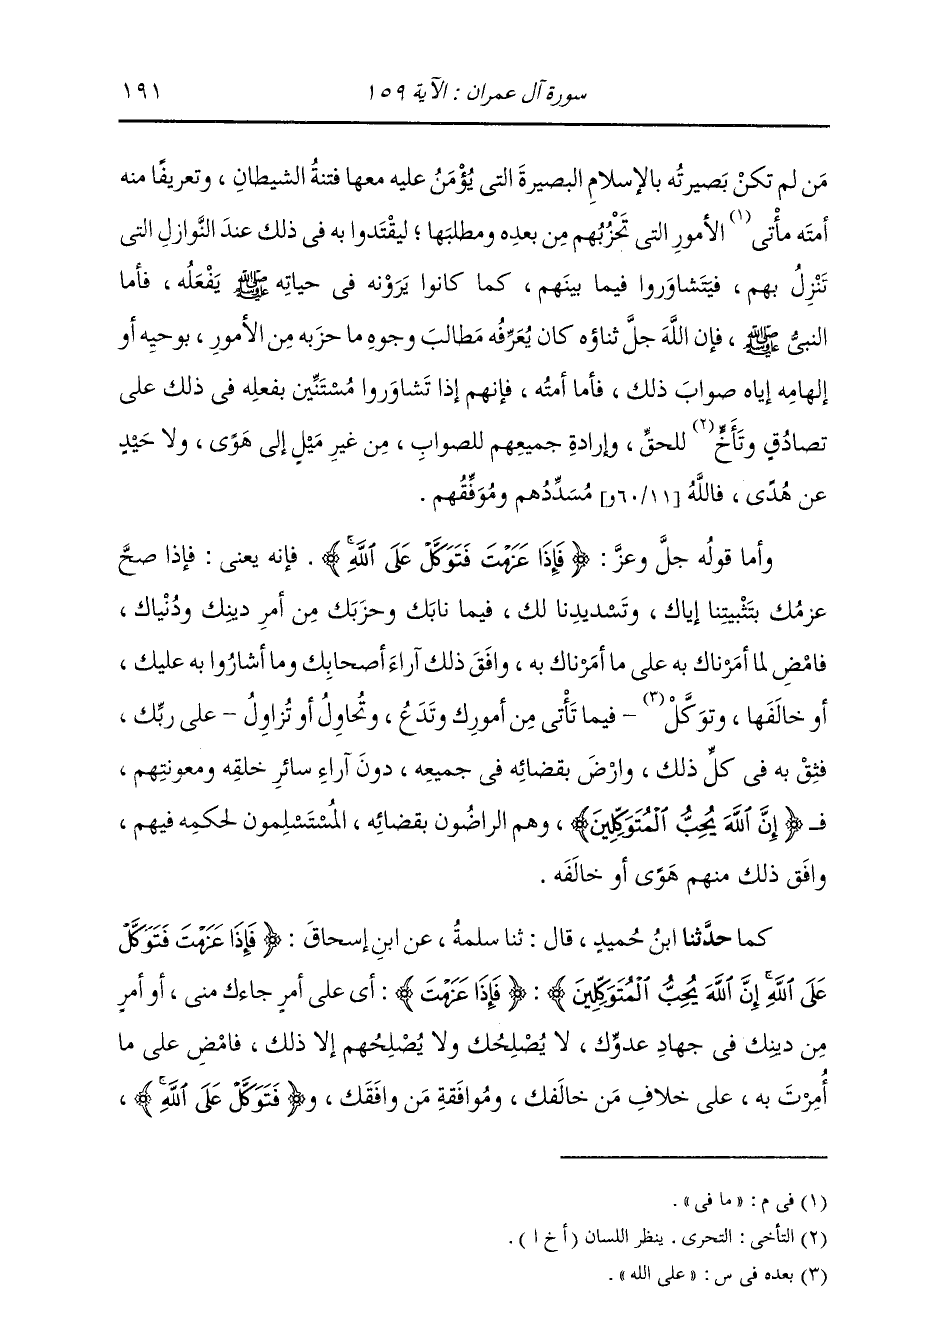 سورة آل عمران : الآية ١٥٩ ١٩١
مَن لم تكنْ بَصيرتُه بالإسلامِ البصيرةَ التى يُؤْمَنُ عليه معها فتنةُ الشيطانِ ، وتعريفًا منه
أمتَه مأْتى(١) الأمورِ التى تَحْزُبُهم مِن بعدِه ومطلبَها ؛ ليقْتَدوا به فى ذلك عندَ النَّوازلِ التى
تَنْزِلُ بهم ، فيَتَشاوَروا فيما بينَهم ، كما كانوا يَرَوْنه فى حياتِه ﷺ يَفْعَلُه ، فأما
النبىُّ ﷺ ، فإن اللَّهَ جلَّ ثناؤه كان يُعَرِّفُه مَطالبَ وجوهِ ما حزَبه مِن الأمورِ ، بوحيِه أو
إلهامِه إياه صوابَ ذلك ، فأما أمتُه ، فإنهم إذا تَشاوَروا مُسْتَنِّين بفعلِه فى ذلك على
تصادُقٍ وتَأَخٍّ(٢) للحقِّ ، وإرادةِ جميعِهم للصوابِ ، مِن غيرِ مَيْلٍ إلى هوًى ، ولا حَيْدٍ
عن هُدًى ، فاللَّهُ [٦٠/١١و] مُسَدِّدُهم ومُوَفِّقُهم .
وأما قولُه جلَّ وعزَّ : ﴿ فَإِذَا عَزَمْتَ فَتَوَكَّلْ عَلَى ٱللَّهِۚ ﴾ . فإنه يعنى : فإذا صحَّ
عزمُك بتَثْبيتِنا إياك ، وتَسْديدِنا لك ، فيما نابَك وحزَبَك مِن أمرِ دينِك ودُنْياك ،
فامْضِ لما أمَرْناك به على ما أمَرْناك به ، وافَقَ ذلك آراءَ أصحابِك وما أشارُوا به عليك ،
أو خالَفَها ، وتوَكَّلْ(٣) – فيما تَأْتى مِن أمورِك وتَدَعُ ، وتُحاوِلُ أو تُزاوِلُ – على ربِّك ،
فثِقْ به فى كلِّ ذلك ، وارْضَ بقضائِه فى جميعِه ، دونَ آراءِ سائرِ خلقِه ومعونتِهم ،
فـ ﴿ إِنَّ ٱللَّهَ يُحِبُّ ٱلْمُتَوَكِّلِينَ﴾ ، وهم الراضُون بقضائِه ، المُسْتَسْلِمون لحكمِه فيهم ،
وافَق ذلك منهم هَوًى أو خالَفَه .
كما حدَّثنا ابنُ حُميدٍ ، قال : ثنا سلمةُ ، عن ابنِ إسحاقَ : ﴿ فَإِذَا عَزَمْتَ فَتَوَكَّلْ
عَلَى ٱللَّهِۚ إِنَّ ٱللَّهَ يُحِبُّ ٱلْمُتَوَكِّلِينَ ﴾ : ﴿ فَإِذَا عَزَمْتَ ﴾ : أى على أمرٍ جاءك منى ، أو أمرٍ
مِن دينِك فى جهادِ عدوِّك ، لا يُصْلِحُك ولا يُصْلِحُهم إلا ذلك ، فامْضِ على ما
أُمِرْتَ به ، على خلافِ مَن خالَفك ، ومُوافَقةِ مَن وافَقك ، و﴿ فَتَوَكَّلْ عَلَى ٱللَّهِۚ ﴾ ،
(١) فى م : « ما فى» .
(٢) التأخى : التحرى . ينظر اللسان ( أ خ ا ) .
(٣) بعده فى س : « على الله» .